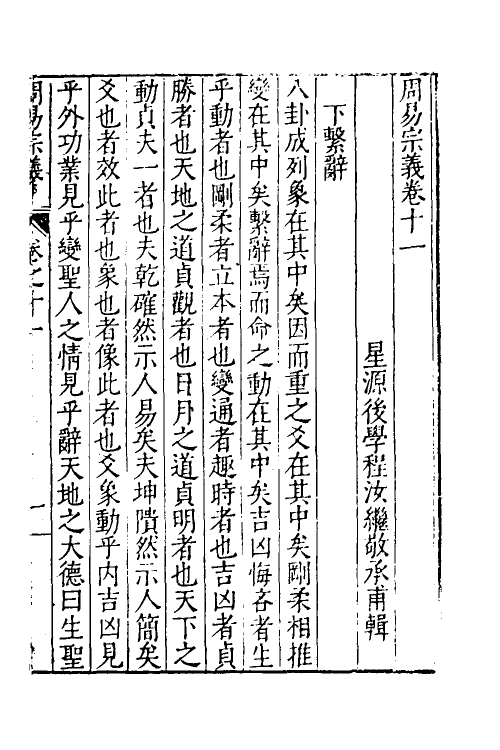 周易宗義卷十一
星源後學程汝繼敬承甫輯
下繫辭
八卦成列象在其中矣因而重之爻在其中矣剛柔相推
變在其中矣繫辭焉而命之動在其中矣吉凶悔吝者生
乎動者也剛柔者立本者也變通者趣時者也吉凶者貞
勝者也天地之道貞觀者也日月之道貞明者也天下之
動貞夫一者也夫乾確然示人易矣夫坤隤然示人簡矣
爻也者效此者也象也者像此者也爻象動乎內吉凶見
乎外功業見乎變聖人之情見乎辭天地之大德曰生聖
周易宗義 卷之十一 一